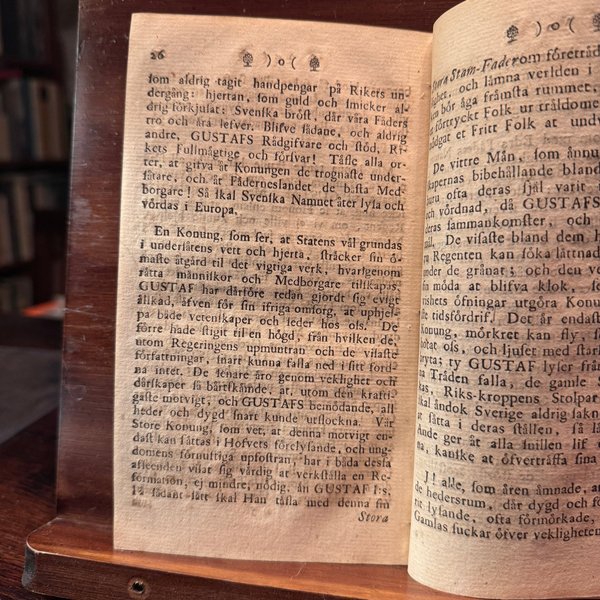 26 ) o (
som aldrig tagit handpengar på Rikets un-
dergång: hjertan, som guld och smicker al-
drig förkjusat; Svenska bröst, där våra Fäders
tro och ära lefver. Blifve sådane, och aldrig
andre, GUSTAFS Rådgifvare och stöd, Ri-
kets Fullmägtige, och försvar! Täfle alla or-
ter, at gifva åt Konungen de trognaste under-
såtare, och åt Fäderneslandet de bästa Med-
borgare! Så skal Svenska Namnet åter lysa och
vördas i Europa.
En Konung, som ser, at Statens väl grundas
i underlåtens vett och hjerta, sträcker sin ö-
maste åtgärd til det vigtiga verk, hvarigenom
rätta människor och Medborgare tilskapas.
GUSTAF har därföre redan gjordt sig evigt
älskad, äfven för sin ifriga omsorg, at uphjel-
pa både vetenskaper och seder hos oss. De
förre hade stigit til en högd, från hvilken de,
utom Regeringens upmuntran och de visaste
författningar, snart kunna falla ned i sitt ford-
na intet. De senare äro genom veklighet och
dårskaper så bårtskämde, at, utom den krafti-
gaste motvigt, och GUSTAFS bemödande, all
heder och dygd snart kunde utslockna. Vår
Store Konung, som vet, at denna motvigt en-
dast kan sättas i Hofvets föresyn, och ung-
domens förnuftiga upfostran, har i båda dessa
afseenden visat sig värdig at verkställa en Re-
formation, ej mindre nödig, än GUSTAF I:s.
På sådant sätt skal Han täfla med denna sin
Stora
) o (
Stora Stam-Fader om företräd
het, och lämna verlden i
bör äga främsta rummet,
förtryckt Folk ur träldome
Fritt Folk at undv
De vittre Män, som ännu
bibehållande bland
ofta deras själ varit
och vördnad, då GUSTAFS
deras sammankomster, och
De visaste bland dem h
Regenten kan söka lättnad
under de grånat; och den ve
möda at blifva klok, se
öfningar utgöra Konu
tidsfördrif. Det är endast
Konung, mörkret kan fly, f
och ljuset med stark
ty GUSTAF lyser från
Tråden falla, de gamle S
Riks-kroppens Stolpar
skal ändok Sverige aldrig sakn
sätta i deras ställen, så lä
ger åt alla snillen lif o
na, kanske at öfverträffa sina
J! alle, som åren ämnade, an
de hedersrum, där dygd och för
lysande, ofta förmörkade,
Gamlas suckar öfver vekligheten